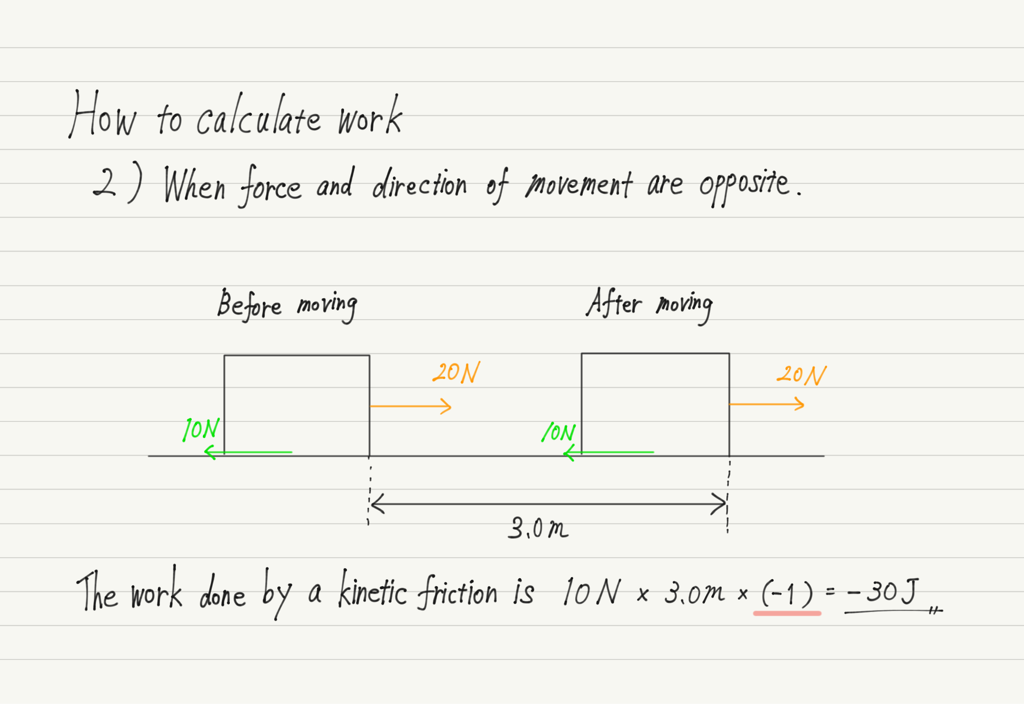 How to calculate work
2) When force and direction of movement are opposite.
Before moving
After moving
20N
20N
10N
10N
3.0m
The work done by a kinetic friction is 10N × 3.0m × (-1) = -30J